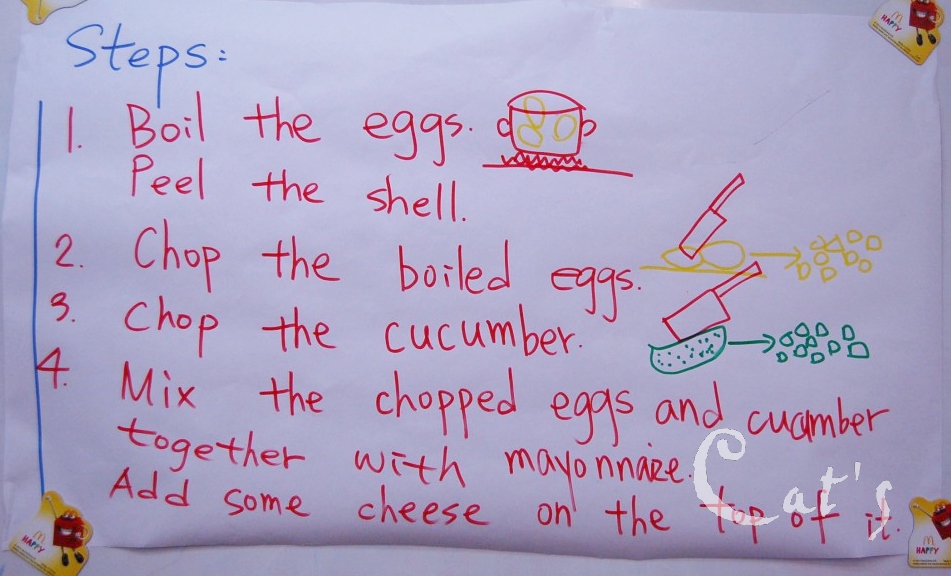 Steps:
1. Boil the eggs.
Peel the shell.
2. Chop the boiled eggs.
3. Chop the cucumber.
4. Mix the chopped eggs and cucumber
together with mayonnaize.
Add some cheese on the top of it.
Cat's
HAPPY
HAPPY
HAPPY